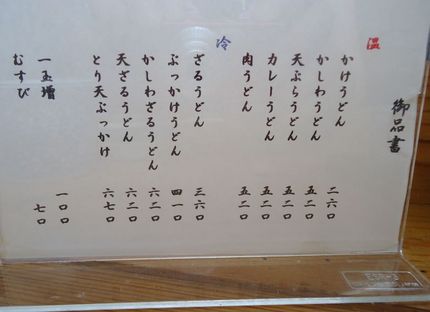 御品書
温
かけうどん 二六〇
かしわうどん 五二〇
天ぷらうどん 五二〇
カレーうどん 五二〇
肉うどん 五二〇
冷
ざるうどん 三六〇
ぶっかけうどん 四一〇
かしわざるうどん 六二〇
天ざるうどん 六二〇
とり天ぶっかけ 六七〇
一玉増 一〇〇
むすび 七〇